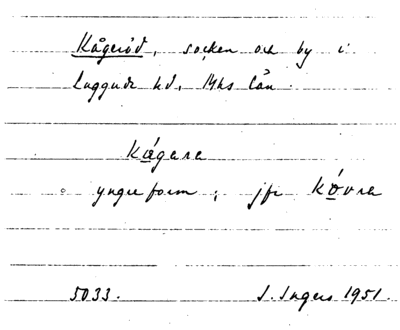 Kågeröd, socken och by i
Luggude hd, Mhs län.
Kågara
yngre form; jfr Kóvra
5033. I. Ingers 1951.